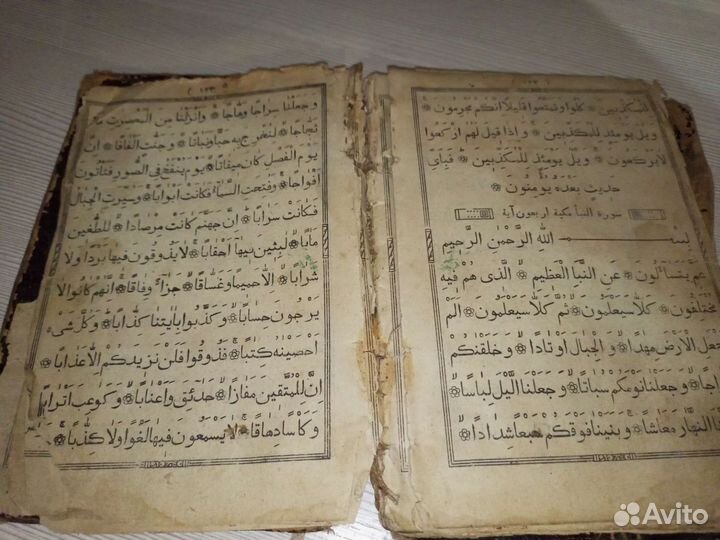 ( ١٢٢ )
للمكذبين ۞ كلوا وتمتعوا قليلاً انكم مجرمون ۞
ويل يومئذ للمكذبين ۞ واذا قيل لهم اركعوا
لايركعون ۞ ويل يومئذ للمكذبين ۞ فباى
حديث بعده يومنون ۞
سورة النبأ مكية اربعون آية
بسم الله الرَّحْمٰنِ الرَّحِيمِ
عَمَّ يَتَسَاۤءَلُونَ ۞ عَنِ النَّبَاِ الْعَظِيمِ ۞ الَّذِى هُمْ فِيهِ
مُخْتَلِفُونَ ۞ كَلَّا سَيَعْلَمُونَ ۞ ثُمَّ كَلَّا سَيَعْلَمُونَ ۞ اَلَمْ
نَجْعَلِ الْاَرْضَ مِهَدًا ۞ وَالْجِبَالَ اَوْتَادًا ۞ وَخَلَقْنَكُمْ
اَزْوَاجًا ۞ وَجَعَلْنَا نَوْمَكُمْ سُبَاتًا ۞ وَجَعَلْنَا الَّيْلَ لِبَاسًا ۞
وَجَعَلْنَا النَّهَارَ مَعَاشًا ۞ وَبَنَيْنَا فَوْقَكُمْ سَبْعًا شِدَادًا ۞
( ١٢٣ )
وَجَعَلْنَا سِرَاجًا وَهَّاجًا ۞ وَاَنْزَلْنَا مِنَ الْمُعْصِرَتِ مَاۤءً
ثَجَّاجًا ۞ لِنُخْرِجَ بِهِ حَبًّا وَنَبَاتًا ۞ وَجَنَّتٍ اَلْفَافًا ۞ اِنَّ
يَوْمَ الْفَصْلِ كَانَ مِيقَاتًا ۞ يَوْمَ يُنْفَخُ فِى الصُّورِ فَتَأْتُونَ
اَفْوَاجًا ۞ وَفُتِحَتِ السَّمَاۤءُ فَكَانَتْ اَبْوَابًا ۞ وَسُيِّرَتِ الْجِبَالُ
فَكَانَتْ سَرَابًا ۞ اِنَّ جَهَنَّمَ كَانَتْ مِرْصَادًا ۞ لِلطّٰغِينَ
مَاٰبًا ۞ لٰبِثِينَ فِيهَا اَحْقَابًا ۞ لَا يَذُوقُونَ فِيهَا بَرْدًا وَلَا
شَرَابًا ۞ اِلَّا حَمِيمًا وَغَسَّاقًا ۞ جَزَاۤءً وِفَاقًا ۞ اِنَّهُمْ كَانُوا لَا
يَرْجُونَ حِسَابًا ۞ وَكَذَّبُوا بِاٰيٰتِنَا كِذَّابًا ۞ وَكُلَّ شَىْءٍ
اَحْصَيْنٰهُ كِتٰبًا ۞ فَذُوقُوا فَلَنْ نَزِيدَكُمْ اِلَّا عَذَابًا ۞
اِنَّ لِلْمُتَّقِينَ مَفَازًا ۞ حَدَاۤئِقَ وَاَعْنَابًا ۞ وَكَوَاعِبَ اَتْرَابًا
وَكَأْسًا دِهَاقًا ۞ لَا يَسْمَعُونَ فِيهَا لَغْوًا وَلَا كِذّٰبًا ۞
Avito